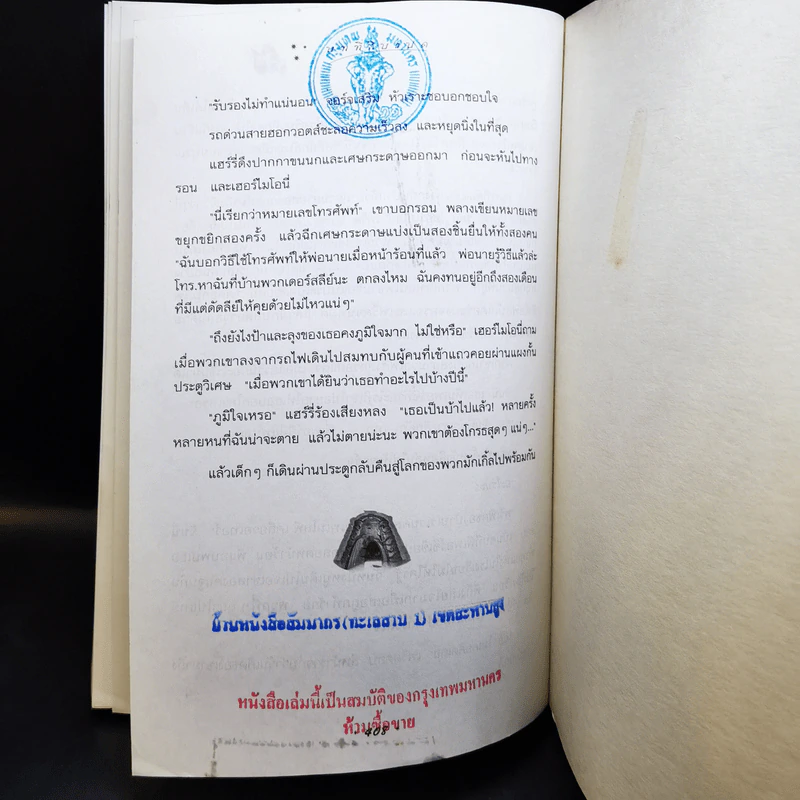 กรุงเทพมหานคร
"รับรองไม่ทำแน่นอน" จอร์จเสริม หัวเราะชอบอกชอบใจ
รถด่วนสายฮอกวอตส์ชะลอความเร็วลง และหยุดนิ่งในที่สุด
แฮร์รี่ดึงปากกาขนนกและเศษกระดาษออกมา ก่อนจะหันไปทาง
รอน และเฮอร์ไมโอนี่
"นี่เรียกว่าหมายเลขโทรศัพท์" เขาบอกรอน พลางเขียนหมายเลข
ขยุกขยิกสองครั้ง แล้วฉีกเศษกระดาษแบ่งเป็นสองชิ้นยื่นให้ทั้งสองคน
"ฉันบอกวิธีใช้โทรศัพท์ให้พ่อนายเมื่อหน้าร้อนที่แล้ว พ่อนายรู้วิธีแล้วล่ะ
โทร.หาฉันที่บ้านพวกเดอร์สลีย์นะ ตกลงไหม ฉันคงทนอยู่อีกถึงสองเดือน
ที่มีแต่ดัดลีย์ให้คุยด้วยไม่ไหวแน่ๆ"
"ถึงยังไงป้าและลุงของเธอคงภูมิใจมาก ไม่ใช่หรือ" เฮอร์ไมโอนี่ถาม
เมื่อพวกเขาลงจากรถไฟเดินไปสมทบกับผู้คนที่เข้าแถวคอยผ่านแผงกั้น
ประตูวิเศษ "เมื่อพวกเขาได้ยินว่าเธอทำอะไรไปบ้างปีนี้"
"ภูมิใจเหรอ" แฮร์รี่ร้องเสียงหลง "เธอเป็นบ้าไปแล้ว! หลายครั้ง
หลายหนที่ฉันน่าจะตาย แล้วไม่ตายน่ะนะ พวกเขาต้องโกรธสุดๆ แน่ๆ..."
แล้วเด็กๆ ก็เดินผ่านประตูกลับคืนสู่โลกของพวกมักเกิ้ลไปพร้อมกัน
บ้านหนังสือสัมมากร(ทะเลสาบ 1) เขตสะพานสูง
หนังสือเล่มนี้เป็นสมบัติของกรุงเทพมหานคร
ห้ามซื้อขาย
408